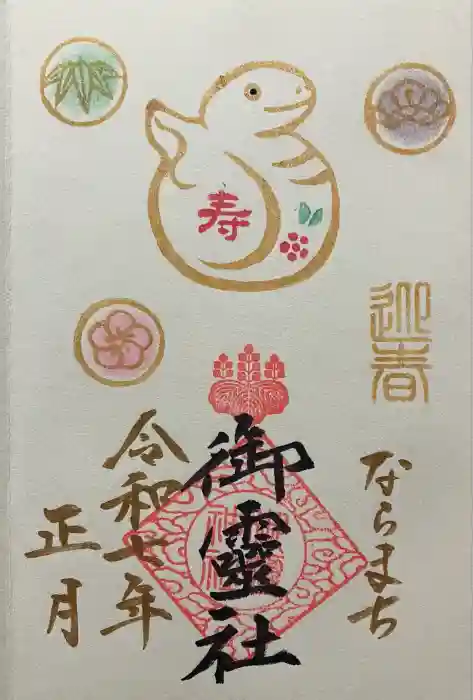 寿
迎春
ならまち
御靈社
令和七年
正月